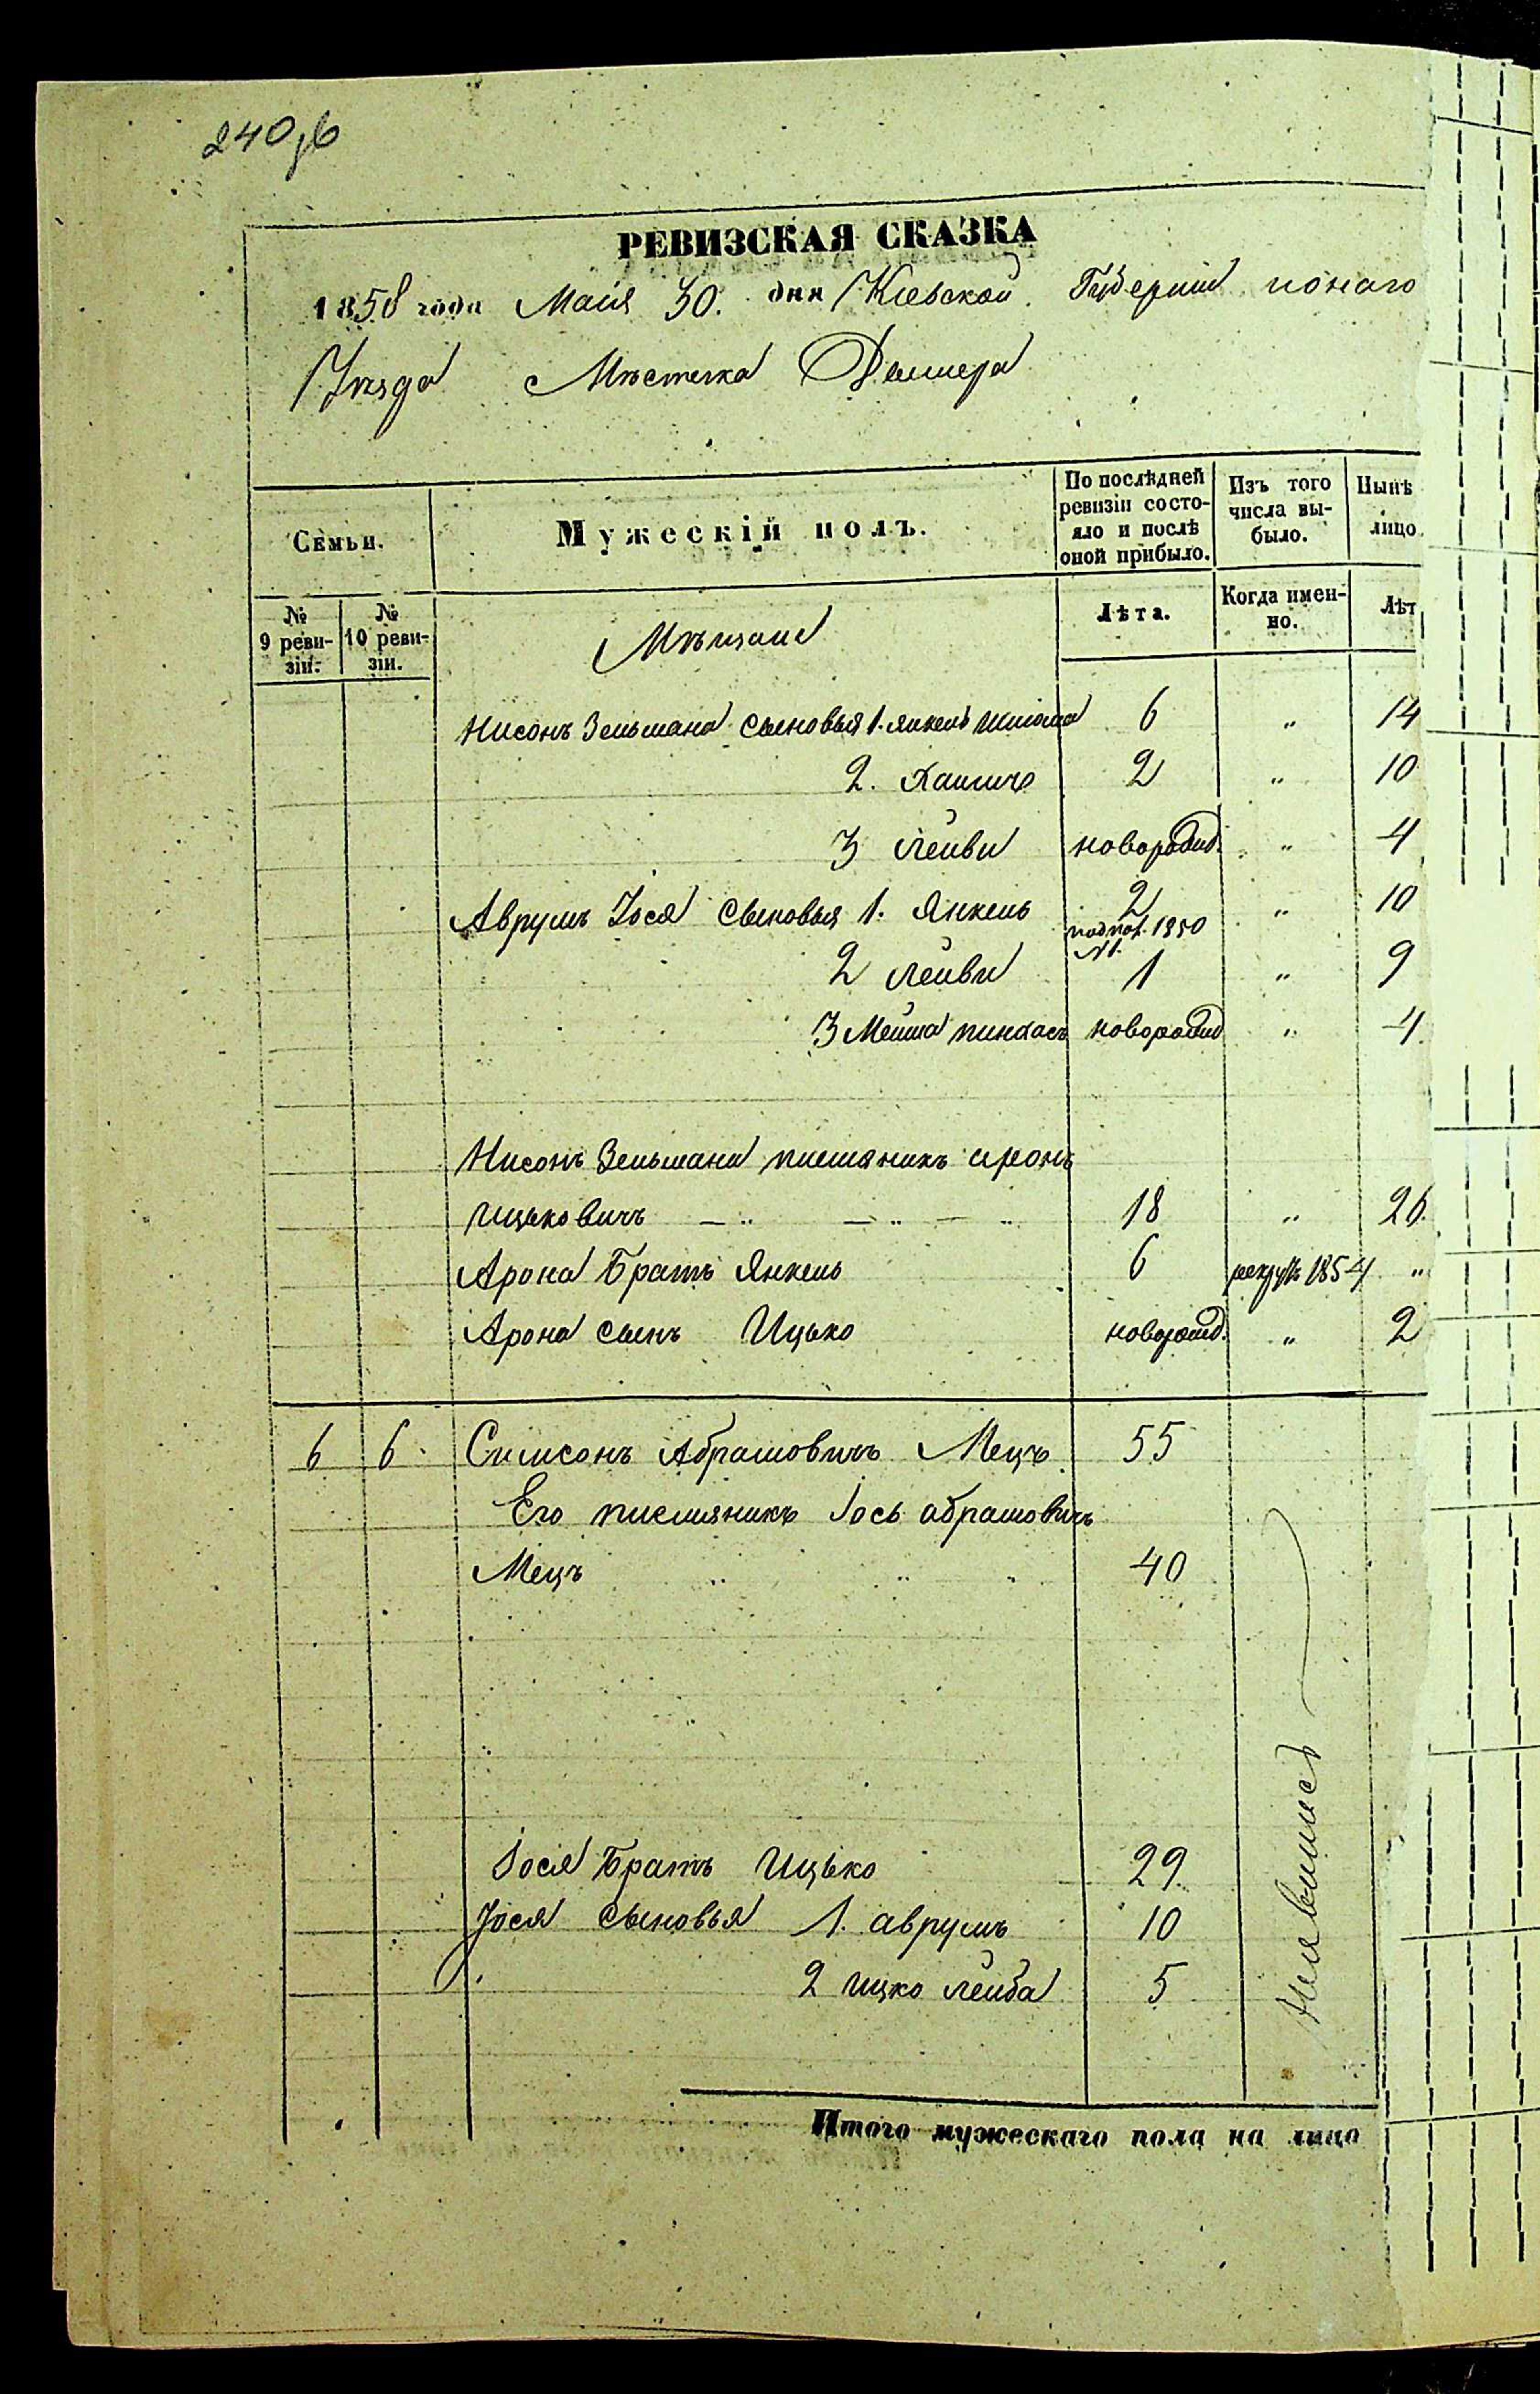 240об
РЕВИЗСКАЯ СКАЗКА
1858 года Маія 30. дня Кіевской Губерніи тогожъ
Уѣзда Мѣстечка Дымера
Семьи.
Мужескій полъ.
По послѣдней ревизіи состояло и послѣ оной прибыло.
Изъ того числа выбыло.
Нынѣ лицо
№ 9 ревизіи.
№ 10 ревизіи.
Мѣщане
Лѣта.
Когда именно.
Лѣт
Нисонъ Зельмана сыновья 1. Янкель 6 " 14
2. Хаимъ 2 " 10
3 Лейби новорожд. " 4
Аврумъ Іося сыновья 1. Янкель 2 " 10
1850
№
2 Лейби 1 " 9
3 Мейша пинхасъ новорожд " 4.
Нисонъ Зельмана племяникъ аронъ
Ицьковичъ — " — " — " 18 " 26.
Арона Братъ Янкель 6 рекрутъ 1854 "
Арона сынъ Ицько новорожд. " 2
6 6. Симсонъ Абрамовичъ Мецъ 55
Его племяникъ Іось абрамовичъ
Мецъ " " " 40
Іося Братъ Ицько 29.
Іося сыновья 1. аврумъ 10
2 ицко лейба 5
Неявились
Итого мужескаго пола на лицо